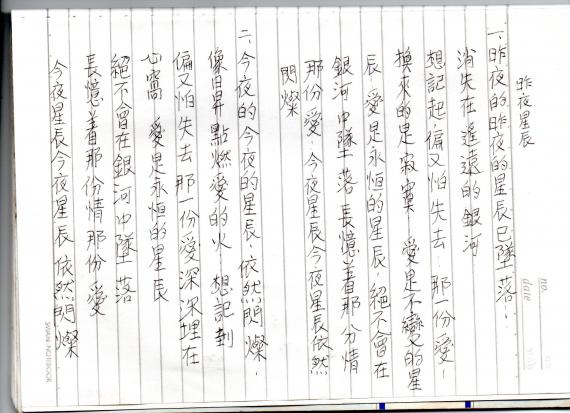 no.
date
昨夜星辰
一、昨夜的昨夜的星辰已墜落.
消失在遙遠的銀河
想記起.偏又怕失去.那一份愛.
換來的是寂寞 愛是不變的星
辰 愛是永恒的星辰.絕不會在
銀河中墜落 長憶著那分情
那份愛.今夜星辰今夜星辰依然
閃燦
二、今夜的今夜的星辰.依然閃燦.
像旧昇點燃愛的火 想記
偏又怕失去那一份愛深深埋在
心窩 愛是永恒的星辰
絕不會在銀河中墜落
長憶著那份情那份愛
今夜星辰今夜星辰依然閃燦
SWAN NOTEBOOK